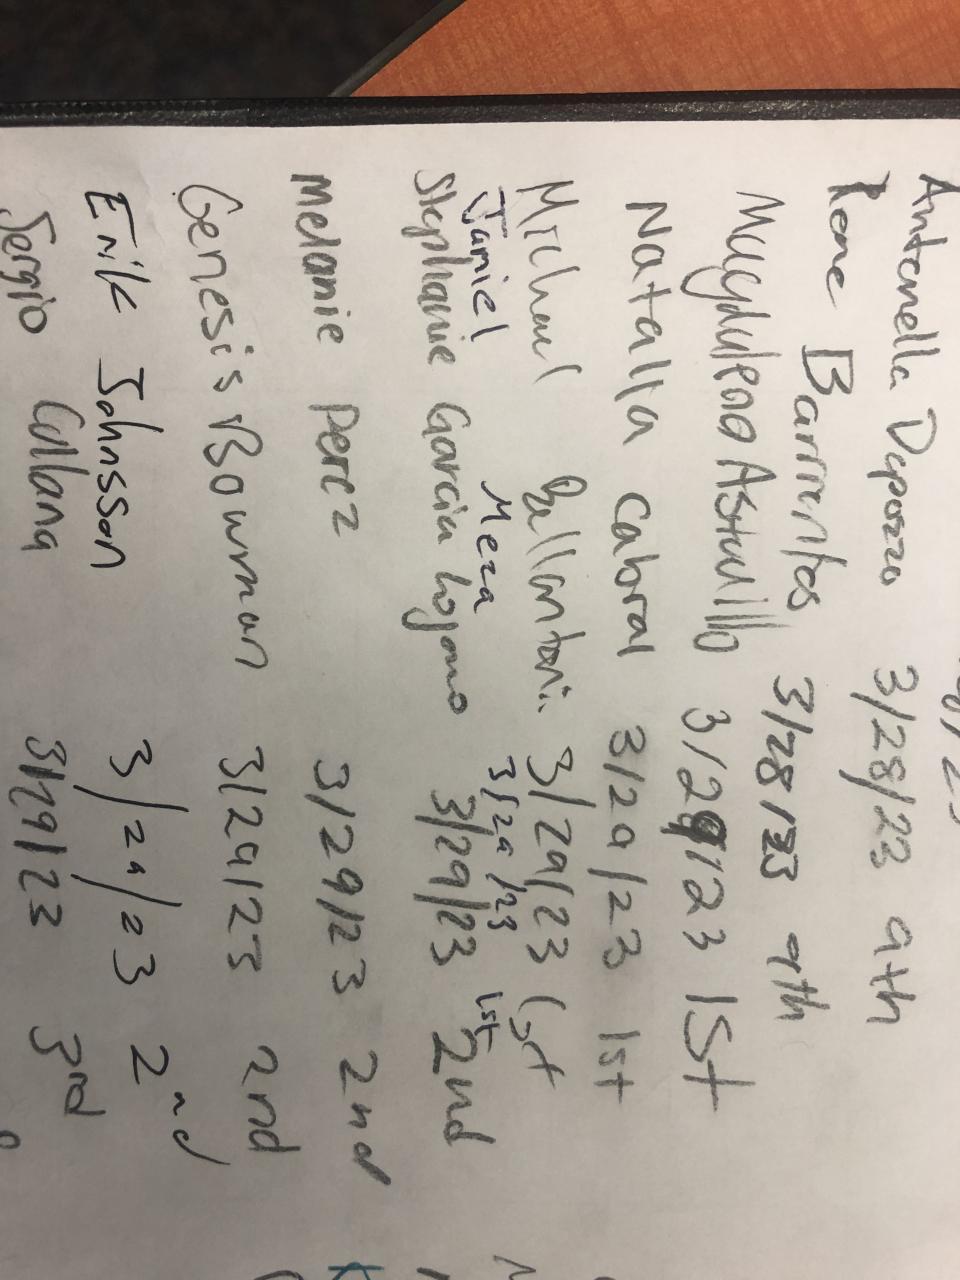 Antonella Depozzo 3/28/23 9th
Rene Barrientos 3/28/23 9th
Magdalena Astudillo 3/29/23 1St
Natalia Cabral 3/29/23 1st
Michael Ballantoni 3/29/23 1st
Janiel Meza 3/29/23 1st
Stephanie Garcia Lozano 3/29/23 2nd
Melanie Perez 3/29/23 2nd
Genesis Bowman 3/29/23 2nd
Erik Johnsson 3/29/23 2nd
Sergio Collana 3/29/23 3rd